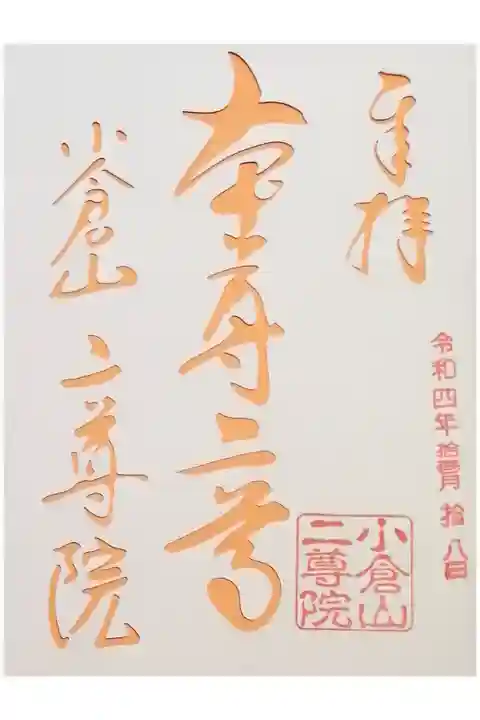 奉拝
令和四年拾壱月拾八日
本尊二尊
小倉山
二尊院
小倉山 二尊院